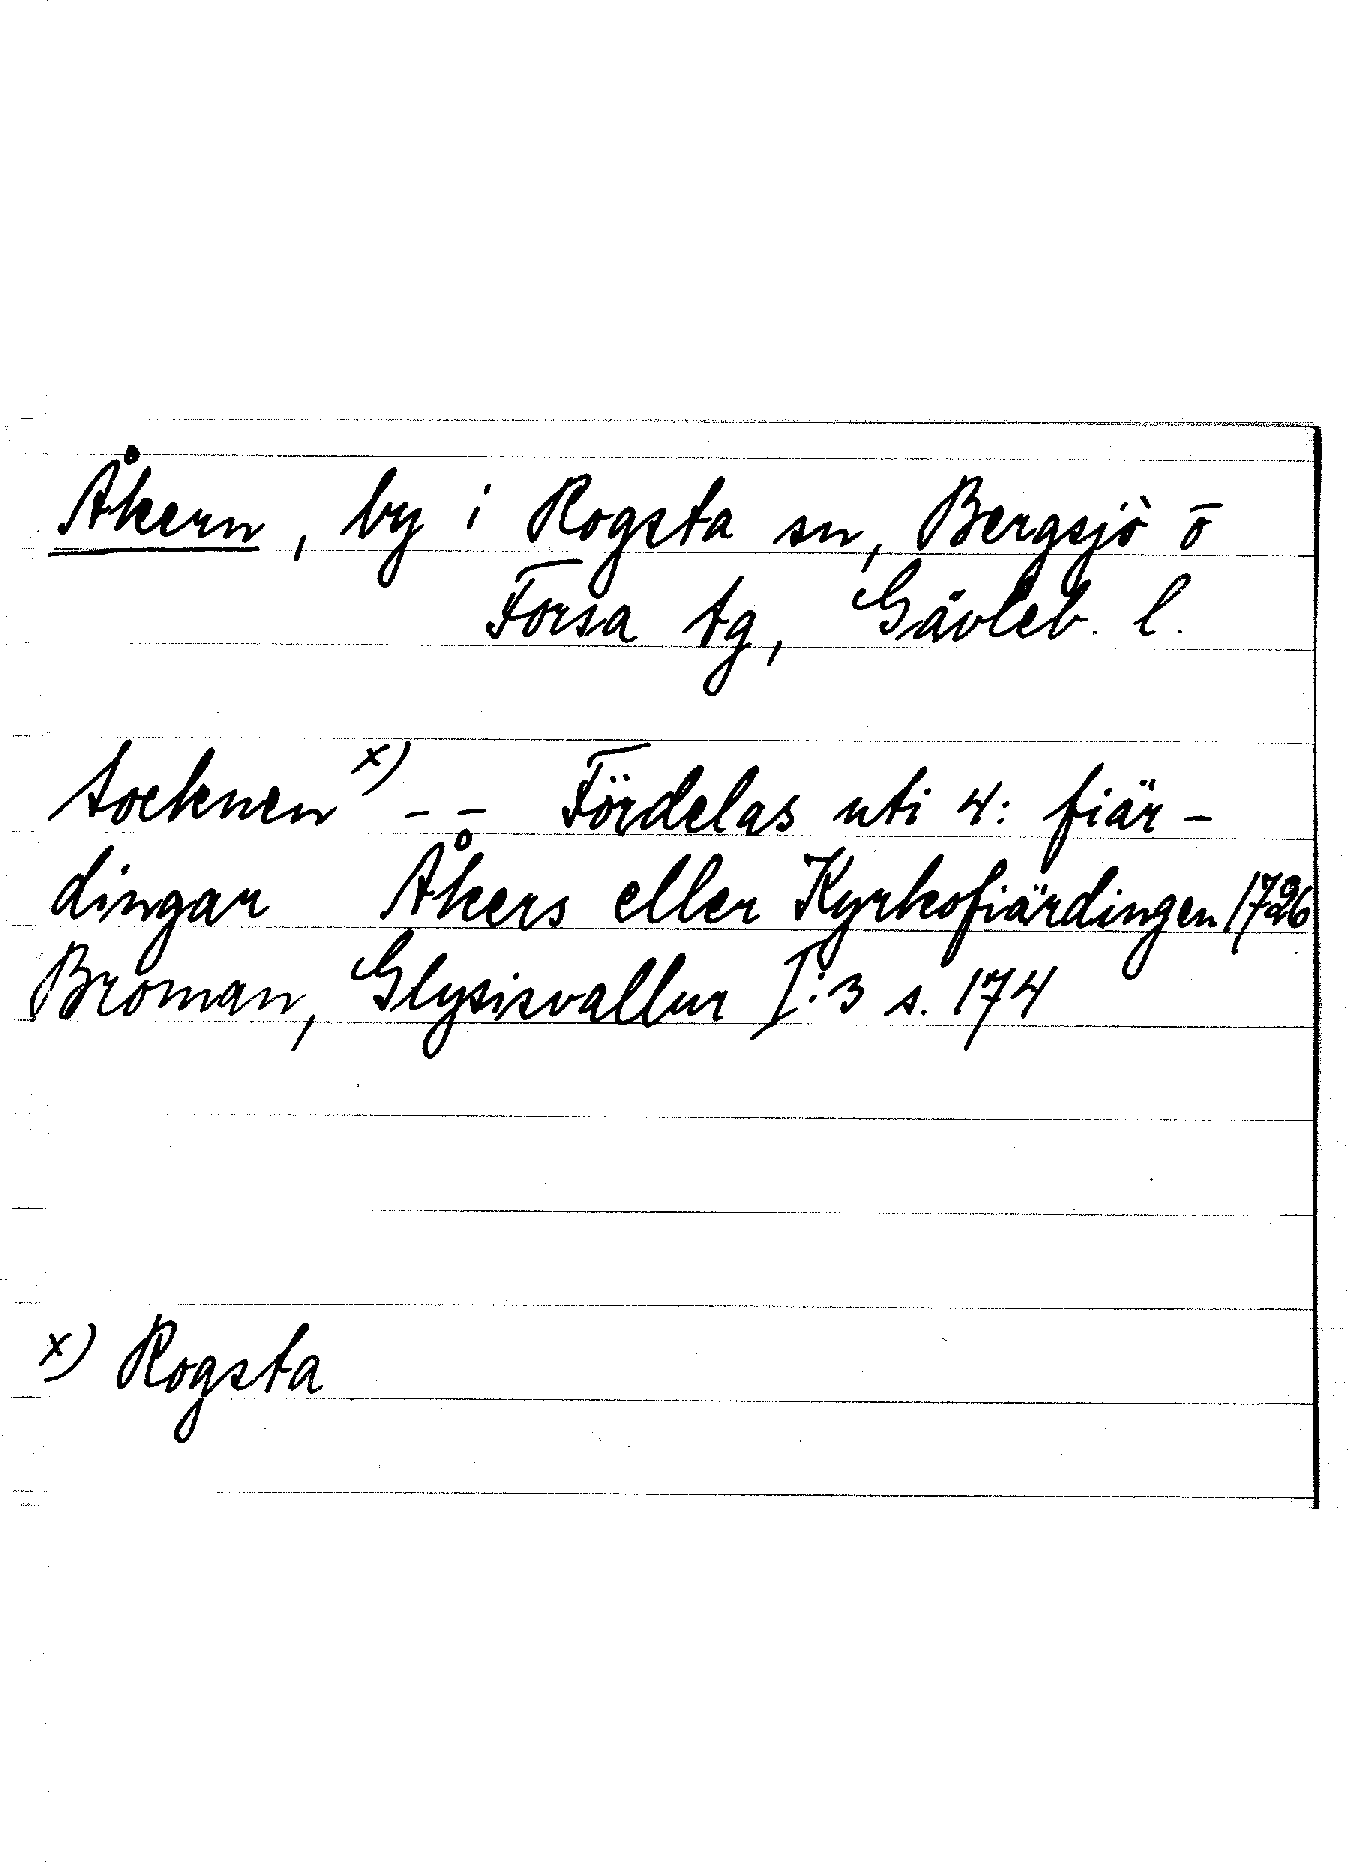 Åkern, by i Rogsta sn, Bergsjö o
Forsa tg, Gävleb. l.
Socknen x) -- Fördelas uti 4: fiär-
dingar Åkers eller Kyrkofiärdingen 1726
Broman, Glysisvallur I:3 s. 174
x) Rogsta